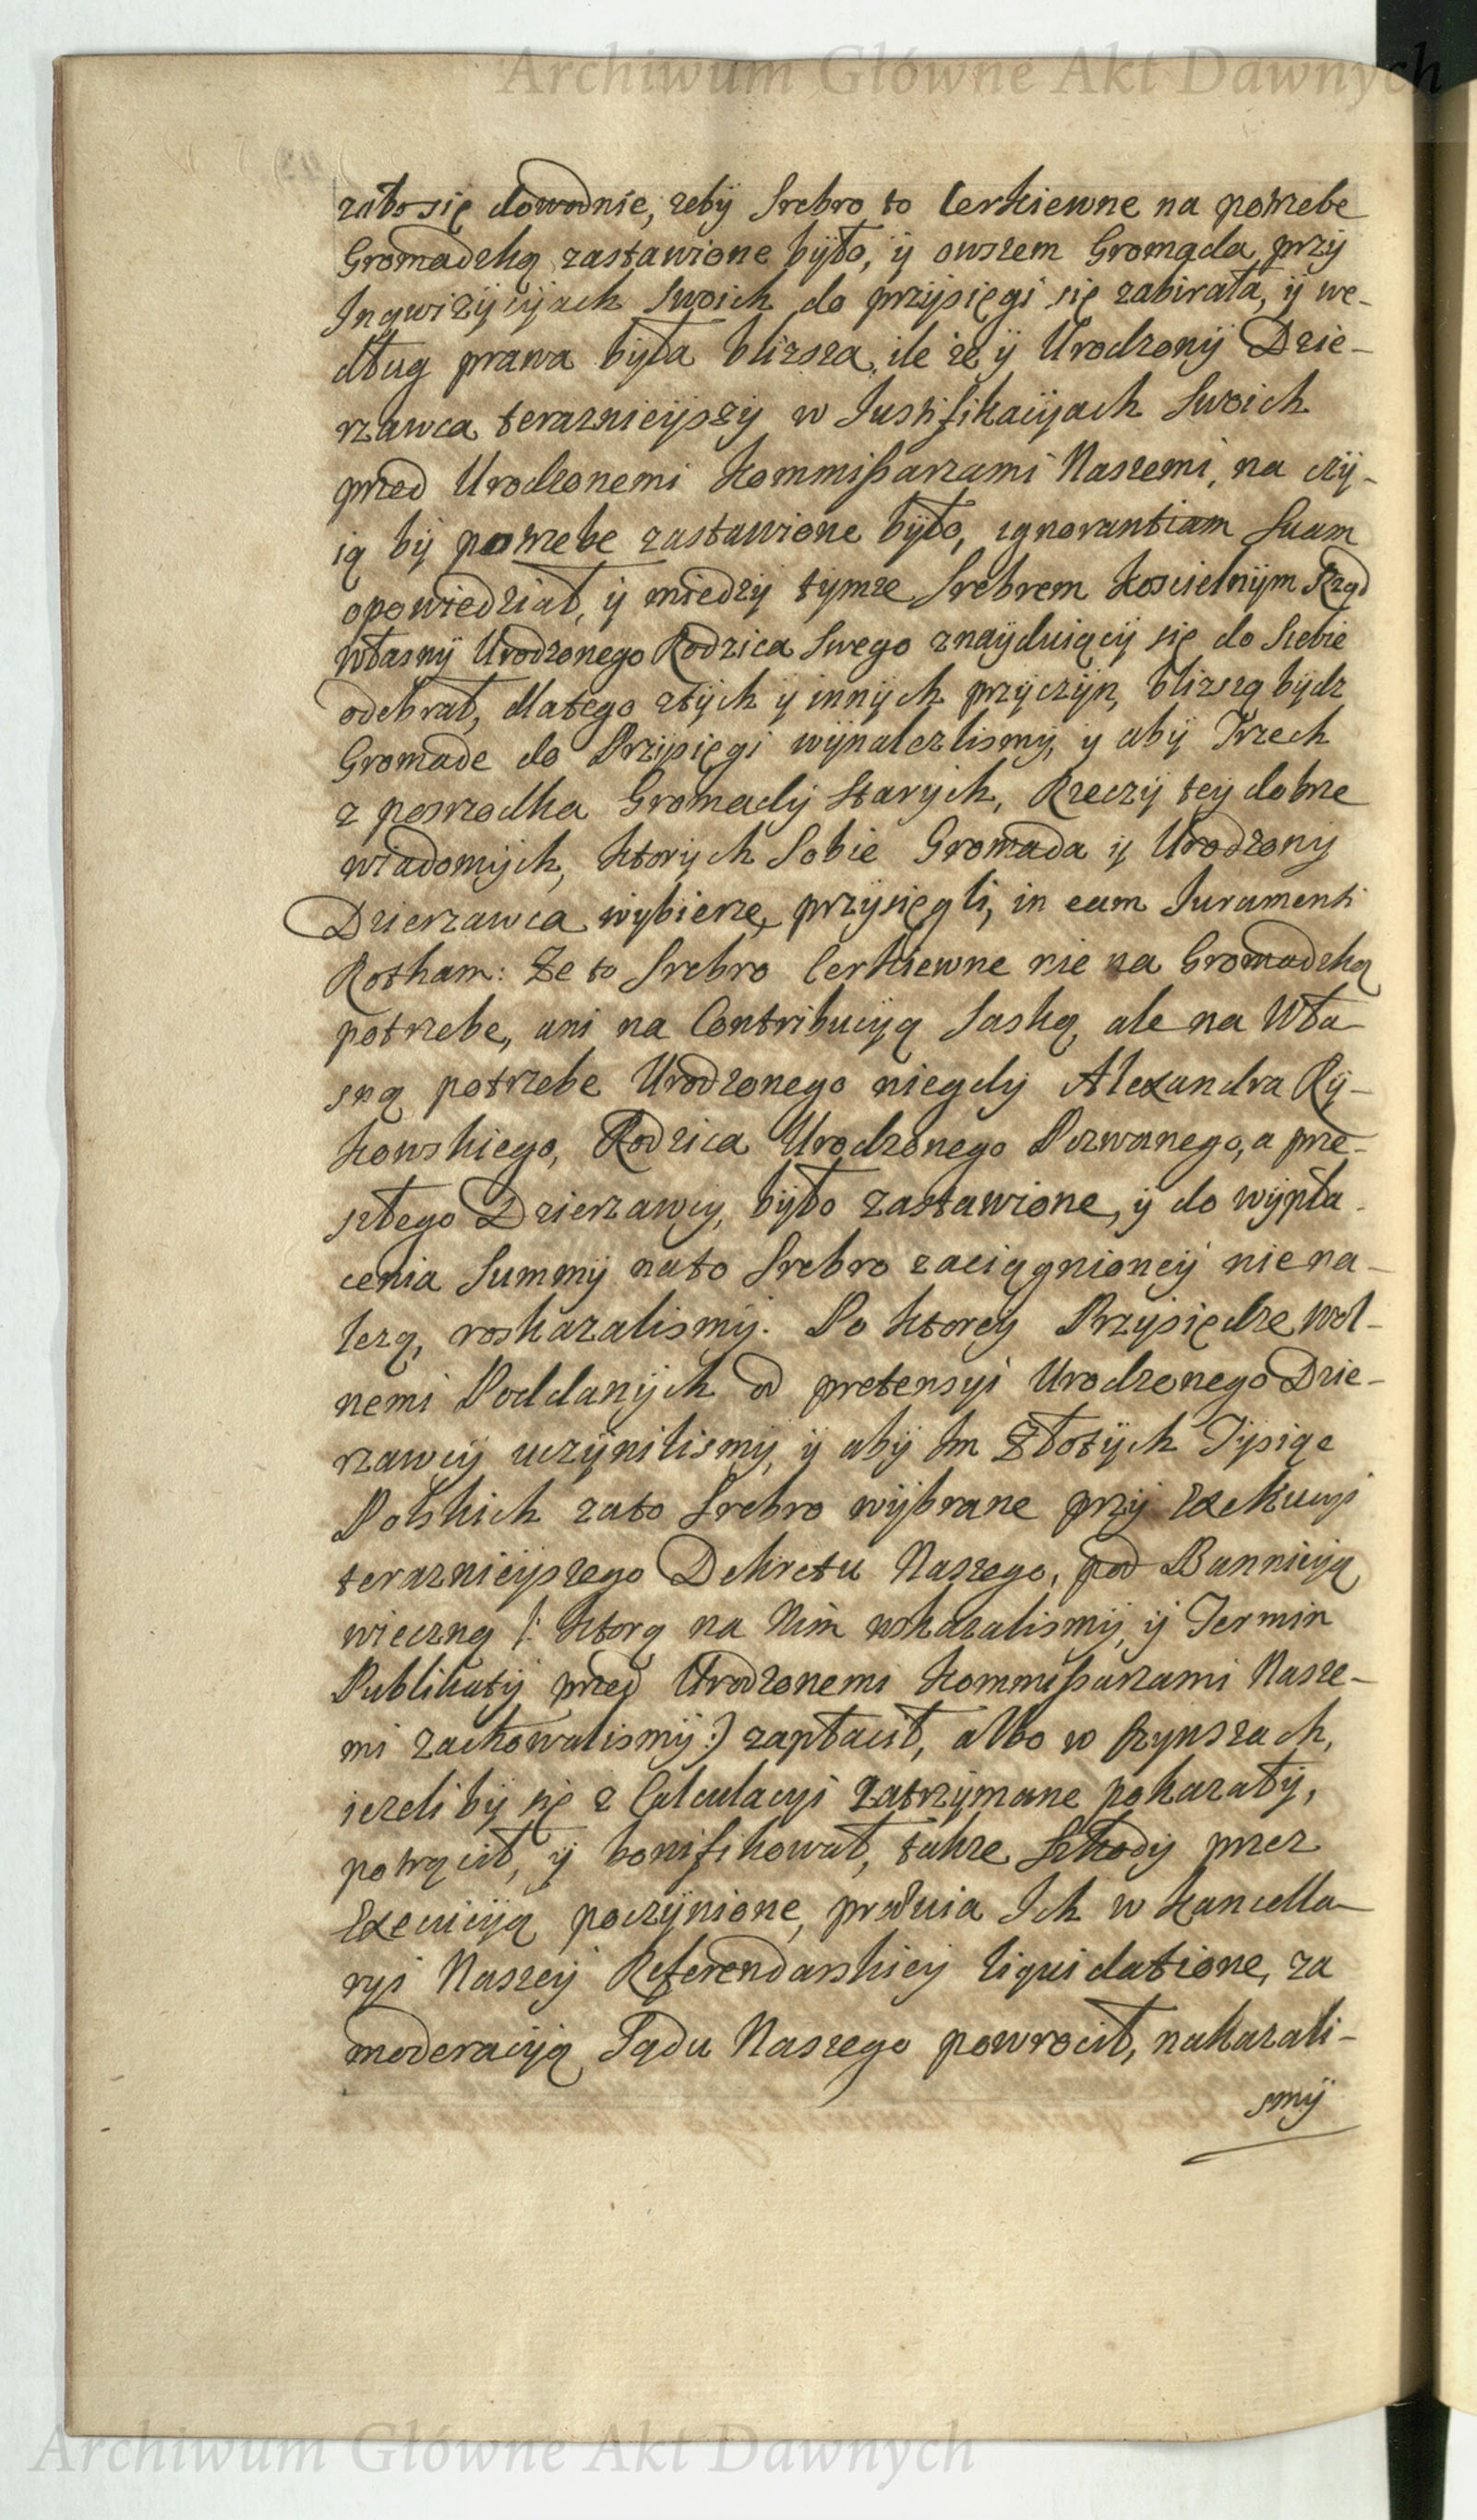 Archiwum Główne Akt Dawnych
załosię dowodnie, zebÿ Srebro to Cerkiewne na potrzebe
Gromadzką zastawione bÿło, ÿ owszem Gromada przÿ
Inqwizÿcÿjach Swoich do przÿsięgi się zabirała, ÿ we-
dług prawa bÿła blizsza, ile ze ÿ Urodzonÿ Dzie-
rzawca teraznieÿszÿ w Justifikacÿjach Swoich
przed Urodzonemi Kommißarzami Naszemi, na czÿ-
ią bÿ potrzebe zastawione bÿło, ignorantiam Suam
opowiedział, ÿ miedzÿ tÿmze Srebrem Koscielnÿm Rząd
własnÿ Urodzonego Rodzica Swego znaÿduiącÿ się do Siebie
odebrał, dlatego ztÿch ÿ innÿch przÿczÿn, blizszą bÿdz
Gromade do Przÿsięgi wÿnalezlismÿ, ÿ abÿ Trzech
z posrzodka Gromadÿ Starÿch, Rzeczÿ teÿ dobrze
wiadomÿch, ktorÿch Sobie Gromada ÿ Urodzony
Dzierzawca wybierze, przÿsięgli, in eam Juramenti
Rotham: Ze to Srebro Cerkiewne nie na Gromadzką
potrzebe, ani na Contribucÿą Saską ale na Wła-
sną potrzebe Urodzonego niegdÿ Alexandra Rÿ-
kowskiego, Rodzica Urodzonego Pozwanego, a prze-
szłego Dzierzawcÿ, bÿło zastawione, ÿ do wÿpła-
cenia Summÿ nato Srebro zaciągnioneÿ nie na-
lezą, roskazalismÿ. Po ktoreÿ Przÿsiędze wol-
nemi Poddanÿch od pretensyi Urodzonego Dzie-
rzawcÿ uczÿnilismÿ, ÿ abÿ Im Złotÿch Tÿsiąc
Polskich zato Srebro wÿbrane przÿ Exekucyi
teraznieÿszego Dekretu Naszego, pod Bannicÿą
wieczną /: ktorą na Nim wskazalismÿ, ÿ Termin
Publikatÿ przed Urodzonemi Kommißarzami Nasze-
mi zachowalismÿ :) zapłacił, albo w Czynszach,
iezelibÿ się z Calculacyi zatrzÿmane pokazałÿ,
potrącił, ÿ bonifikował, także Szkodÿ przez
Exeucÿą poczÿnione, prævia Ich w Kancella-
ryi Naszeÿ Referendarskieÿ liquidatione, za
moderacÿą Sądu Naszego powrocił, nakazali-
smÿ
Archiwum Główne Akt Dawnych